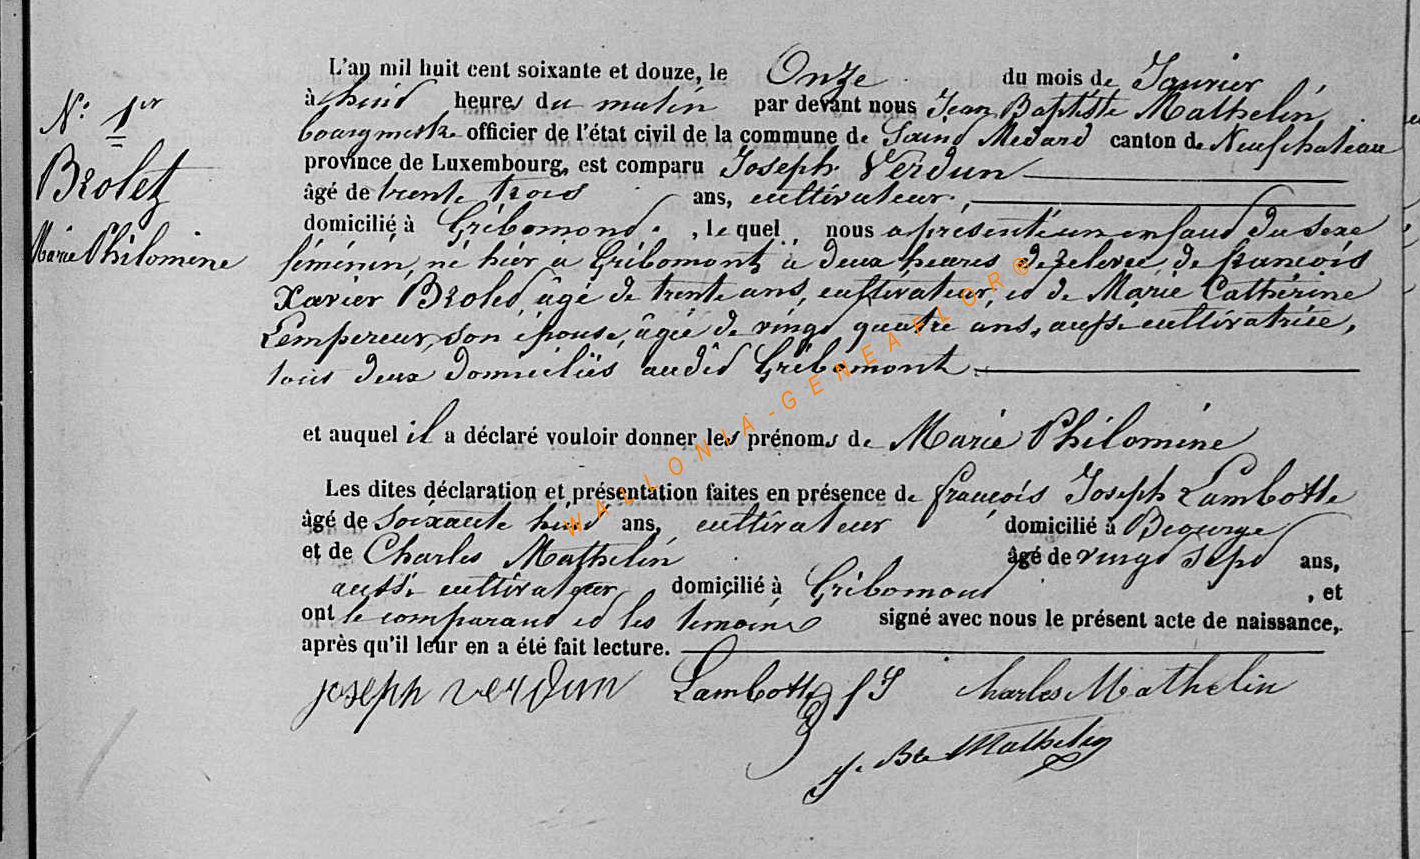 N° 1er
Brolet
Marie Philomène
L'an mil huit cent soixante et douze, le Onze du mois de Janvier
à huit heures du matin par devant nous Jean Baptiste Mathelin,
bourgmestre officier de l'état civil de la commune de Saint Médard canton de Neufchateau
province de Luxembourg, est comparu Joseph Verdun
âgé de trente trois ans, cultivateur,
domicilié à Gribomont, le quel nous a présenté un enfant du sexe
féminin, né hier à Gribomont à deux heures de relevée, de françois
Xavier Brolet, âgé de trente ans, cultivateur, et de Marie Cathérine
Lempereur, son épouse, âgée de vingt quatre ans, aussi cultivatrice,
tous deux domiciliés audit Gribomont
et auquel il a déclaré vouloir donner les prénoms de Marie Philomène
Les dites déclaration et présentation faites en présence de françois Joseph Lambotte
âgé de soixante huit ans, cultivateur domicilié à
et de Charles Mathelin âgé de vingt sept ans,
aussi cultivateur domicilié à Gribomont, et
ont le comparant et les témoins signé avec nous le présent acte de naissance,
après qu'il leur en a été fait lecture.
joseph verdun Lambotte f J Charles Mathelin
J. Bte Mathelin
WALLONIA-GENEAFLOR©